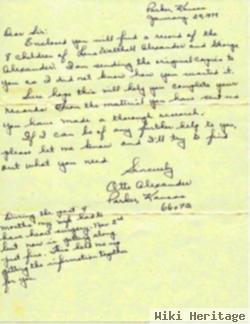 Parker, Kansas
January 29, 1979
Dear Sir:
Enclosed you will find a record of the
8 children of Lena Walthall Alexander and George
Alexander. I am sending the original copies to
you as I did not know how you wanted it.
Sure hope this will help you complete your
records. From the material you have sent me
you have made a thorough research.
If I can be of any further help to you,
please let me know and I'll try to find
out what you need.
Sincerely
Otto Alexander
Parker, Kansas
66072
During the past 4
months my wife had to
have heart surgery, Nov 2nd
but now is getting along
just fine. This held me up
getting the information together
for you.
Wiki Heritage